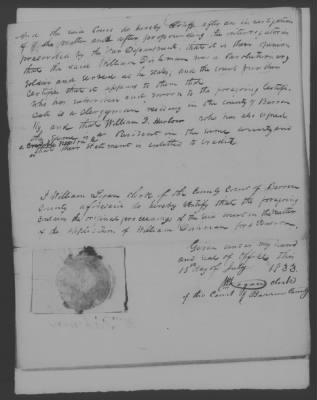 And the said Court do hereby Certify after an investigation
of the matter and after propounding the interrogatories
prescribed by the War Department, that it is their opinion
that the said William Dickman was a Revolutionary
Soldier and served as he states, and the Court further
Certifies that it appears to them that
who has subscribed and sworn to the foregoing Certifi-
cate is a clergyman residing in the County of Barren
Ky, and that William D. who has also signed
the same is a Resident in the same County and
a credible person &
that their Statement is entitled to Credit

I William Logan clerk of the County Court of Barren
County aforesaid do hereby Certify that the foregoing
Contains the original proceedings of the said Court in the matter
of the application of William for a Pension.
Given under my hand
and seal of office this
18th day of July 1833.
Logan clerk
of the Court of Barren County